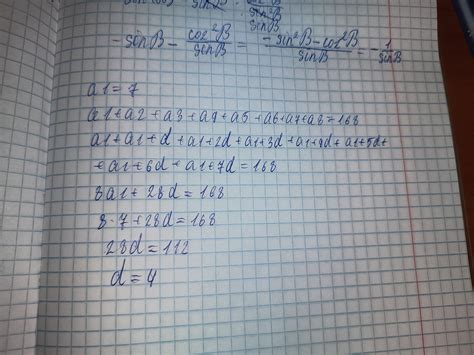 -sinB - cos²B/sinB = -sin²B-cos²B/sinB = -1/sinB
a1=7
a1+a2+a3+a4+a5+a6+a7+a8=168
a1+a1+d+a1+2d+a1+3d+a1+4d+a1+5d+
+a1+6d+a1+7d=168
8a1+28d=168
8·7+28d=168
28d=112
d=4